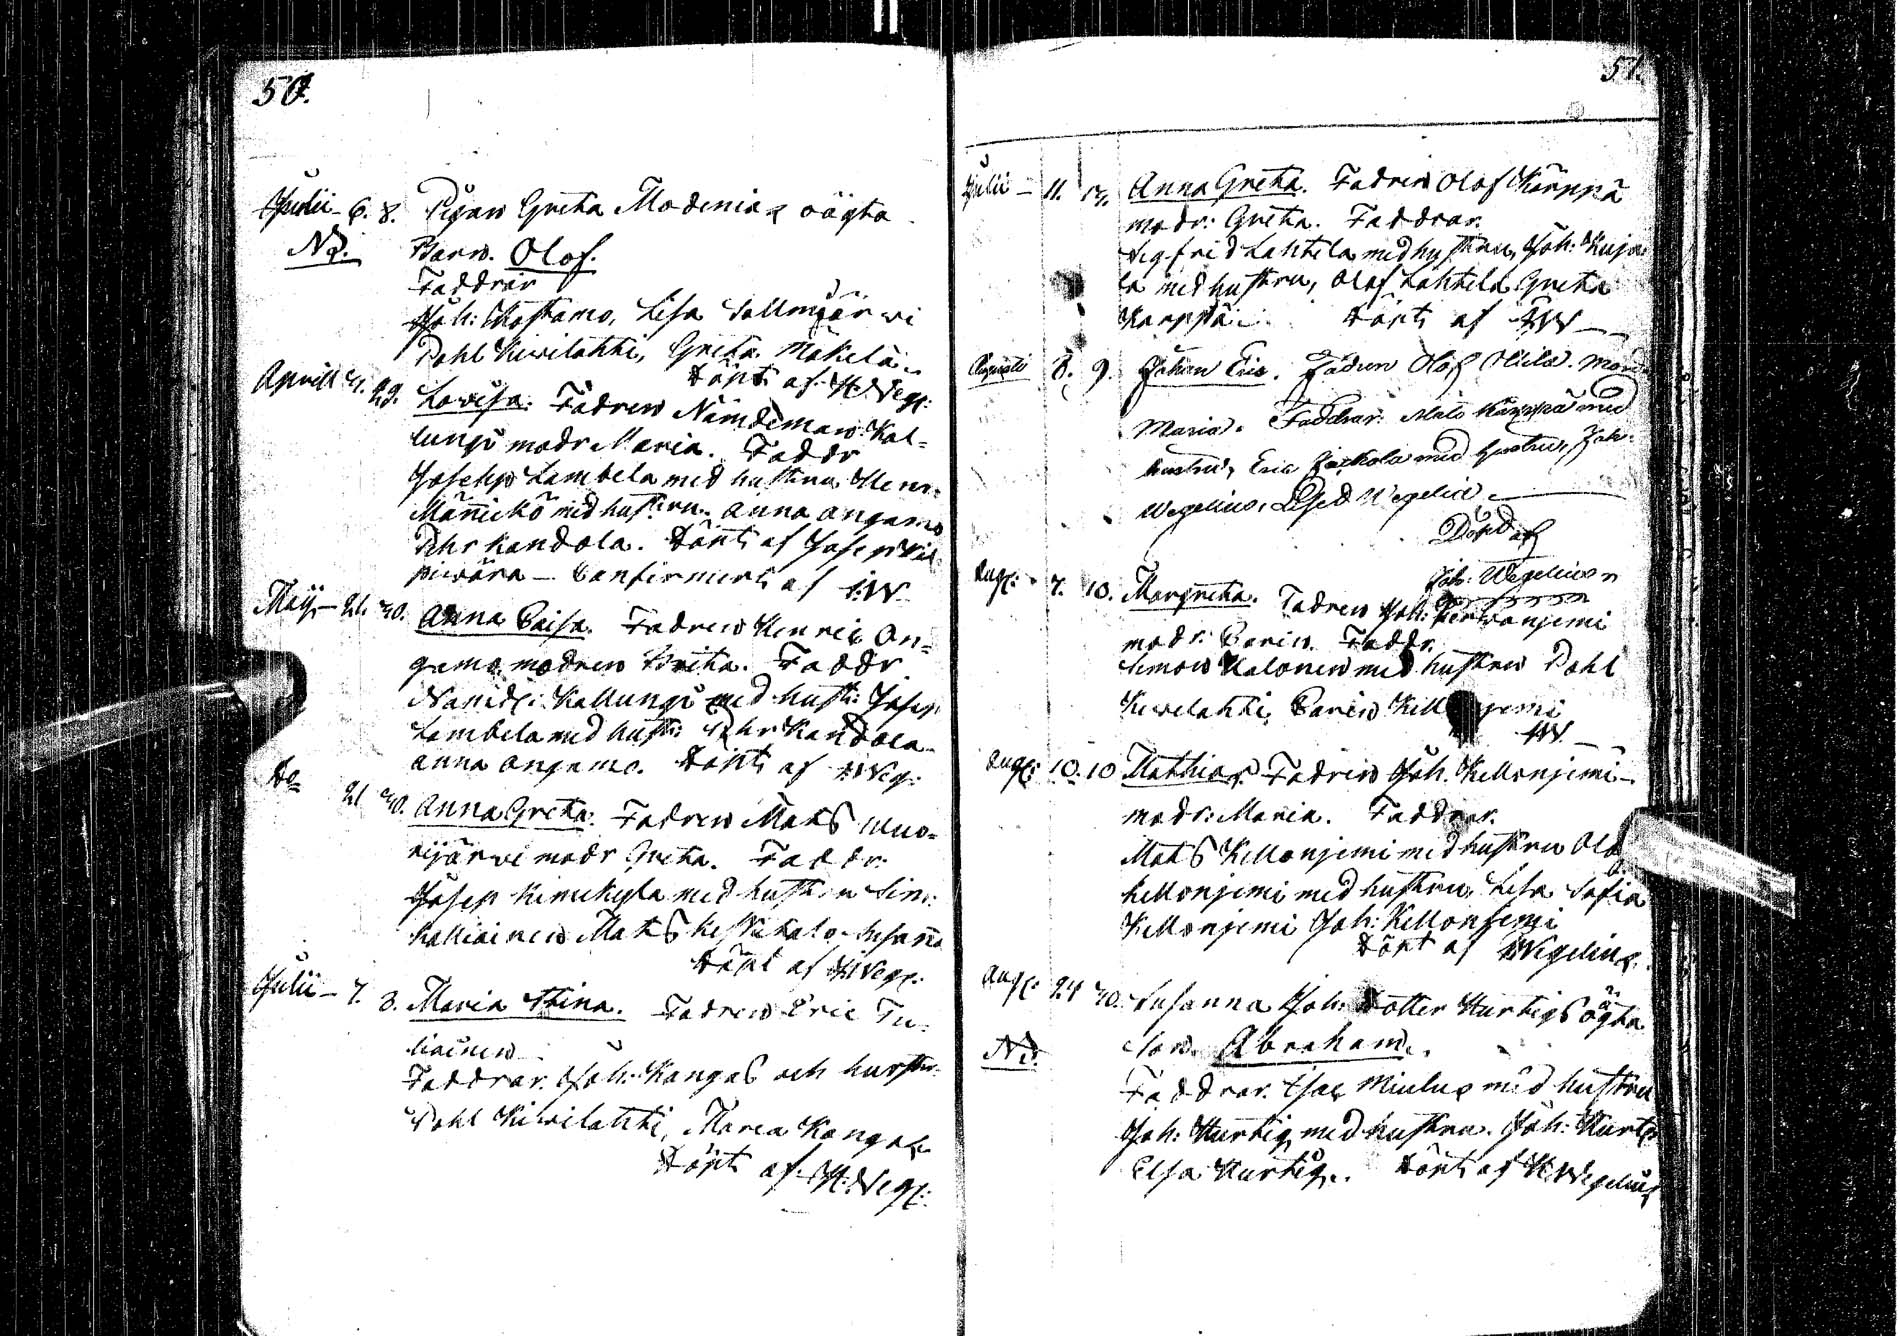 50.
Junii 6. 8. Pigan Greta Modenia oägta
NB. Barn. Olof.
Faddrar
Joh: Kostamo, Lisa Sallmjärwi
Pahl Kiwilahti, Greta Mäkelä.
Döpt af H: Weg:
Aprill 21. 29. Lovisa. Fadren Nämdeman Kal=
lungi modr Maria. Faddr
Joseph Lambela med hustru Henr:
Männikö med hustru. Anna Angamo
Pehr Kandola. Döpt af Joseph
piwära — Confirmert af HW
Maij — 21. 30. Anna Caisa. Fadren Henric An=
gamo, modren Brita. Faddr
Nämd: Kallungi med hust: Josep
Lambela med hust: Pehr Kandola
Anna Angamo. Döpt af HWeg:
Do 21 30. Anna Greta. Fadren Mats Uno=
nijärwi modr Greta. Faddr:
Josep Kimikyla med hustru Sim:
Kalliainen Mats Susanna
Döpt af HWeg:
Julii — 7. 8. Maria Stina. Fadren Eric Tu=
liainen
Faddrar. Joh: Kangas och hustr:
Pahl Kiwilahti, Maria Kangas
Döpt af H: Weg:
51.
Julii — 11. 13. Anna Greta. Fadren Olof Kärppä
modr: Greta. Faddrar.
Sigfrid Lahtela med hustru, Joh: Kuja
la med hustru, Olof Lahtela Greta
Karppä. Döpt af HW —
Augusti 8. 9. Johan Eric. Fadren Olof Ollila. Mor
Maria. Faddrar. Mats Kärppä med
hustru, Eric Jaskola med hustru, Joh.
Wegelius, Lised Wegelia.
Döpt af
Joh: Wegelius
Aug: 7. 10. Margreta. Fadren Joh: Perwanjemi
modr: Carin. Faddr.
Simon Halonen med hustru Pahl
Kiwilahti, Carin Kell jemi
HW
Aug: 10. 10 Mathias. Fadren Joh. Kellonjemi
modr: Maria. Faddrar.
Mats Kellonjemi med hustru Olof
Kellonjemi med hustru, Lisa Sofia
Kellonjemi Joh: Kellonjemi
Döpt af HWegelius.
Aug: 24 30. Susanna Joh: dotter Hurtigs oägta
NB. Son. Abraham.
Faddrar. Isac Miulus med hustru
Joh: Hurtig med hustru. Joh: Hurtig
Elsa Hurtig. Döpt af H. Wegelius